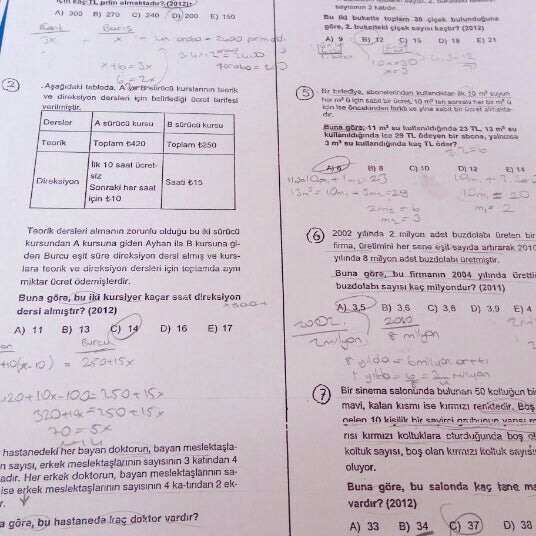 için kaç TL prim almaktadır? (2012)
A) 300 B) 270 C) 240 D) 200 E) 150
3x x
x+b=3x
b=2x
2
Aşağıdaki tabloda, A ve B sürücü kurslarının teorik
ve direksiyon dersleri için belirlediği ücret tarifesi
verilmiştir.
Dersler A sürücü kursu B sürücü kursu
Teorik Toplam ₺420 Toplam ₺250
Direksiyon İlk 10 saat ücret-
siz
Sonraki her saat
için ₺10
Saati ₺15
Teorik dersleri almanın zorunlu olduğu bu iki sürücü
kursundan A kursuna giden Ayhan ile B kursuna gi-
den Burcu eşit süre direksiyon dersi almış ve kurs-
lara teorik ve direksiyon dersleri için toplamda aynı
miktar ücret ödemişlerdir.
Buna göre, bu iki kursiyer kaçar saat direksiyon
dersi almıştır? (2012)
A) 11 B) 13 C) 14 D) 16 E) 17
Burcu
10(x-10) = 250+15x
420+10x-100=250+15x
320+10x=250+15x
70=5x
hastanedeki her bayan doktorun, bayan meslektaşla-
n sayısı, erkek meslektaşlarının sayısının 3 katından 4
adır. Her erkek doktorun, bayan meslektaşlarının sa-
ise erkek meslektaşlarının sayısının 4 ka-tından 2 ek-
r.
a göre, bu hastanede kaç doktor vardır?
sayısının 2 katıdır.
Bu iki bukette toplam 30 çiçek bulunduğuna
göre, 2. buketteki çiçek sayısı kaçtır? (2012)
A) 9 B) 12 C) 15 D) 18 E) 21
10x=30
x=3
5
Bir belediye, abonelerinden kullandıkları ilk 10 m³ suyun
her m³ ü için sabit bir ücret, 10 m³ ten sonraki her bir m³ ü
için ise öncekinden farklı ve yine sabit bir ücret almakta-
dır.
Buna göre; 11 m³ su kullanıldığında 23 TL, 13 m³ su
kullanıldığında ise 29 TL ödeyen bir abone, yalnızca
3 m³ su kullandığında kaç TL öder?
A) 6 B) 8 C) 10 D) 12 E) 14
10m₁ + 3m₂ = 29
2m₂ = 6
m₂ = 3
10m₁ = 20
m₁ = 2
6
2002 yılında 2 milyon adet buzdolabı üreten bir
firma, üretimini her sene eşit sayıda artırarak 2010
yılında 8 milyon adet buzdolabı üretmiştir.
Buna göre, bu firmanın 2004 yılında ürettiği
buzdolabı sayısı kaç milyondur? (2011)
A) 3,5 B) 3,6 C) 3,8 D) 3,9 E) 4
2002 2010
2milyon 8 milyon
8 yılda = 6milyon arttı
7
Bir sinema salonunda bulunan 50 koltuğun bir
mavi, kalan kısmı ise kırmızı renktedir. Boş
gelen 10 kişilik bir seyirci grubunun yarısı m
rısı kırmızı koltuklara oturduğunda boş ol
koltuk sayısı, boş olan kırmızı koltuk sayısı
oluyor.
Buna göre, bu salonda kaç tane ma
vardır? (2012)
A) 33 B) 34 C) 37 D) 38